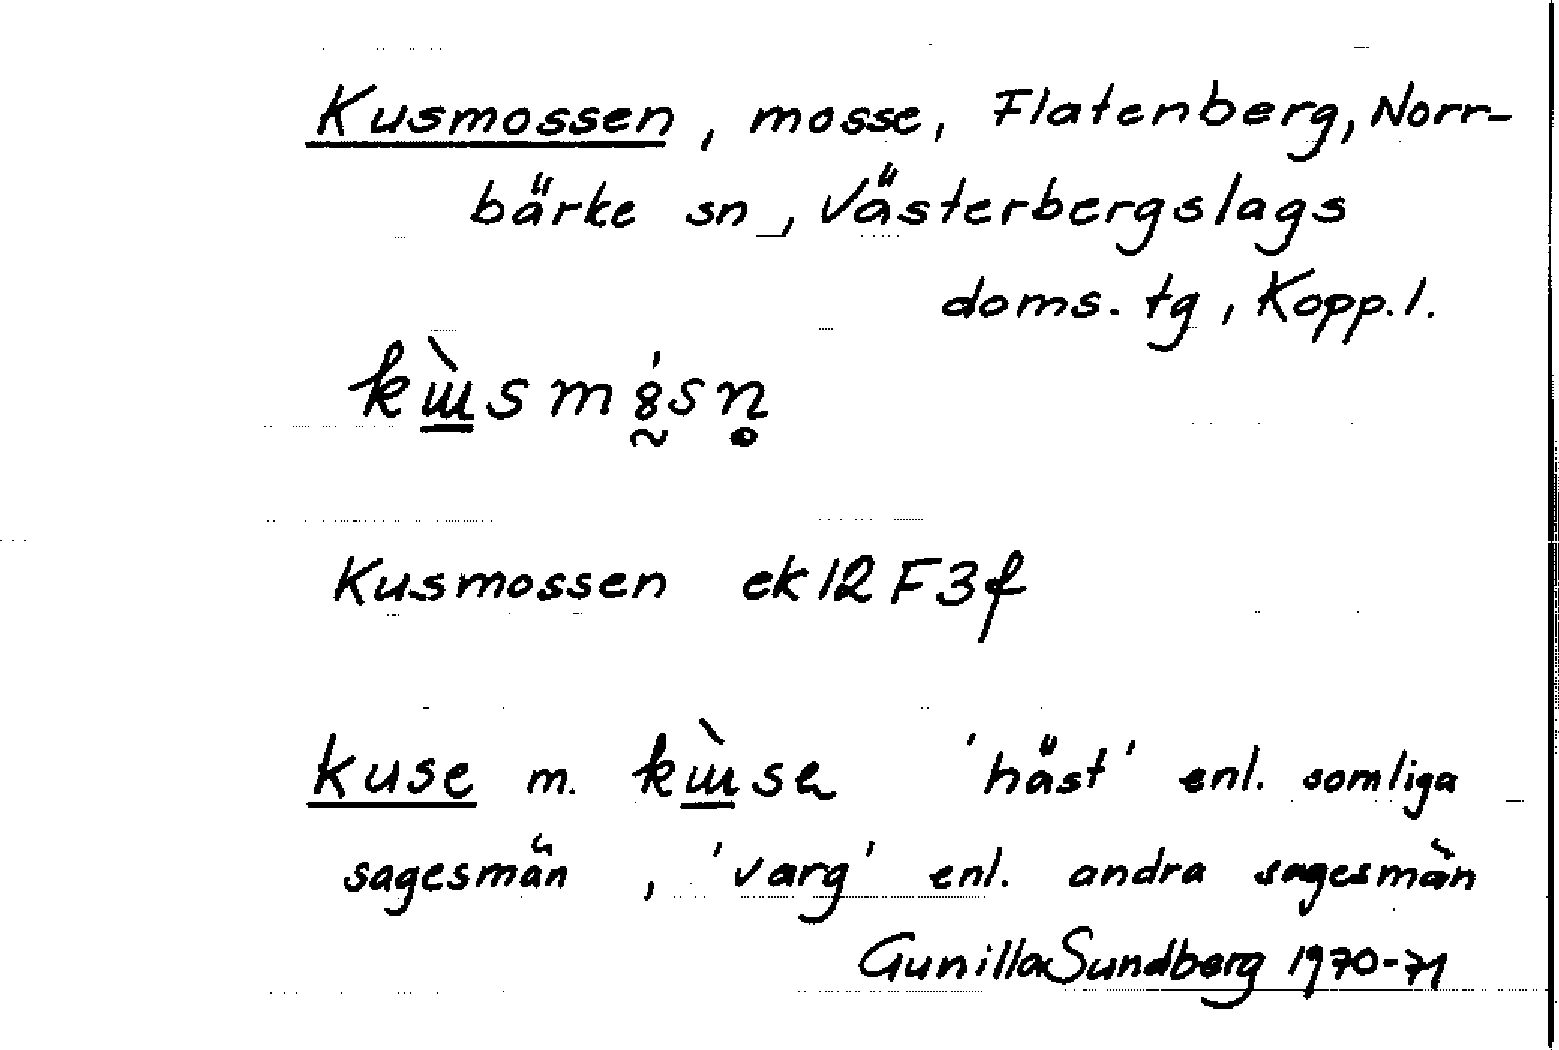 Kusmossen, mosse, Flatenberg, Norr-
bärke sn, Västerbergslags
doms. tg, Kopp. l.
Kusmossen ek 12 F 3f
kuse m. 'häst' enl. somliga
sagesmän, 'varg' enl. andra sagesmän
Gunilla Sundberg 1970-71